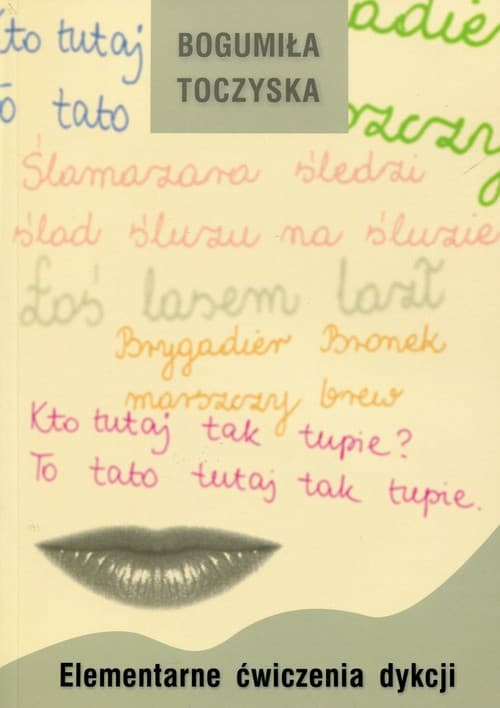 BOGUMIŁA
TOCZYSKA
adier
Kto tutaj
To tato
szczy
Ślamazara śledzi
ślad śluzu na śluzie
Łoś lasem lazł
Brygadier Bronek
marszczy brew
Kto tutaj tak tupie?
To tato tutaj tak tupie.
Elementarne ćwiczenia dykcji